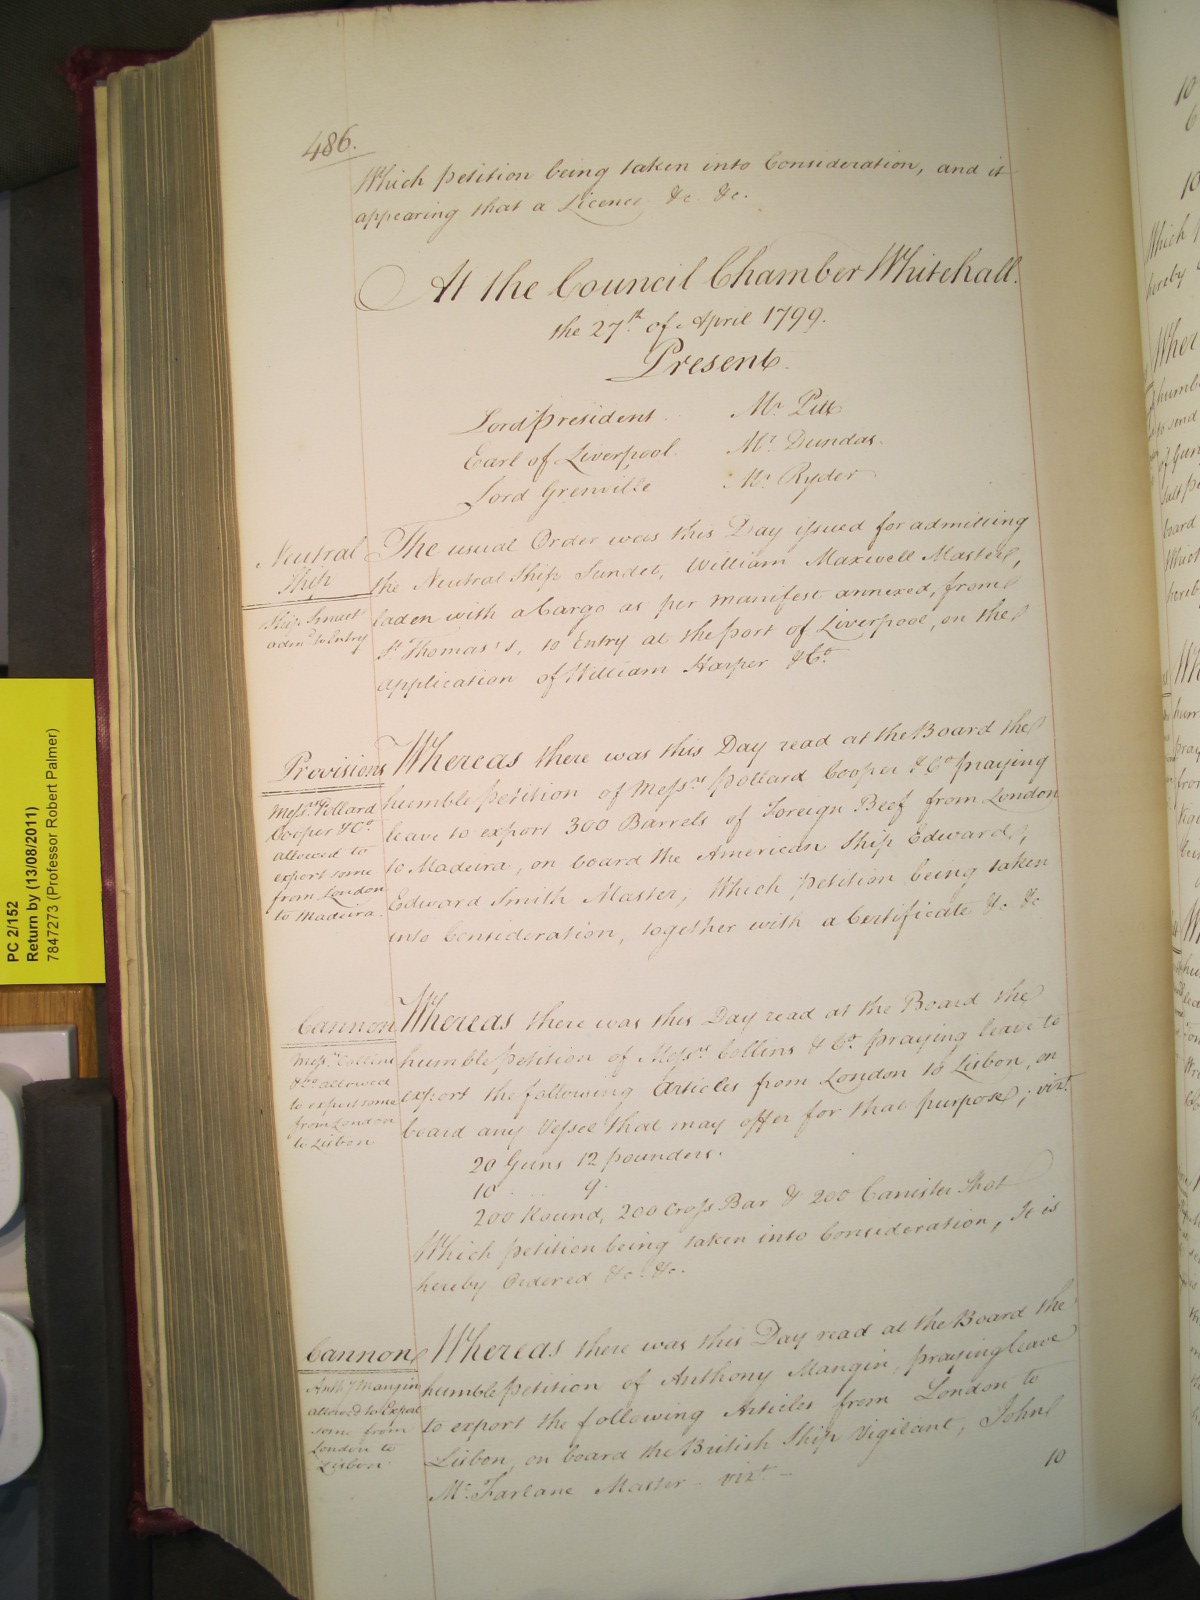 486.
Which petition being taken into Consideration, and it
appearing that a Licence &c. &c.
At the Council Chamber Whitehall.
the 27th. of April 1799.
Present.
Lord president
Mr. Pitt
Earl of Liverpool
Mr. Dundas.
Lord Grenville
Mr. Ryder
Neutral
Ship
Ship
to Entry
The usual Order was this Day issued for admitting
the Neutral Ship William Maxwell Master,
laden with a Cargo as per manifest annexed, from
St. Thomas's, to Entry at the port of Liverpool, on the
application of William Harper & Co.
Provisions
Messrs. Pollard
Cooper & Co.
allowed to
export some
from London
to Madeira.
Whereas there was this Day read at the Board the
humble petition of Messrs. Pollard Cooper & Co. praying
leave to export 300 Barrels of Foreign Beef from London
to Madeira, on board the American Ship Edward,
Edward Smith Master; Which petition being taken
into Consideration, together with a Certificate &c. &c
Cannon
Messrs. Collins
& Co. allowed
to export some
from London
to Lisbon
Whereas there was this Day read at the Board the
humble petition of Messrs. Collins & Co. praying leave to
export the following Articles from London to Lisbon, on
board any Vessel that may offer for that purpose; vizt.
20 Guns 12 pounders.
10 9.
200 Round, 200 Cross Bar & 200 Canister Shot
Which petition being taken into Consideration, It is
hereby Ordered &c. &c.
Cannon
Anthy. Mangin
allowed to Export
some from
London to
Lisbon.
Whereas there was this Day read at the Board the
humble petition of Anthony Mangin, praying leave
to export the following Articles from London to
Lisbon, on board the British Ship Vigilant, John
Mc.Farlane Master - vizt. -
10
PC 2/152
Return by (13/08/2011)
7847273 (Professor Robert Palmer)